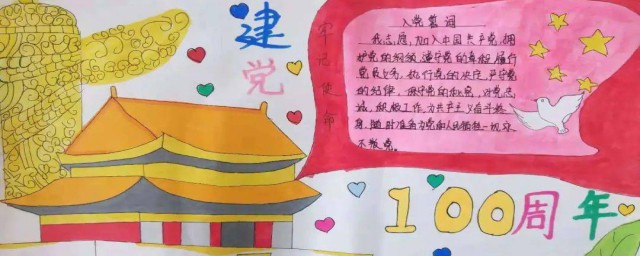 建党
牢记使命
入党誓词
我志愿加入中国共产党,拥
护党的纲领,遵守党的章程,履行
党员义务,执行党的决定,严守党
的纪律,保守党的秘密,对党忠
诚,积极工作,为共产主义奋斗终
身,随时准备为党和人民牺牲一切,永
不叛党。
100周年